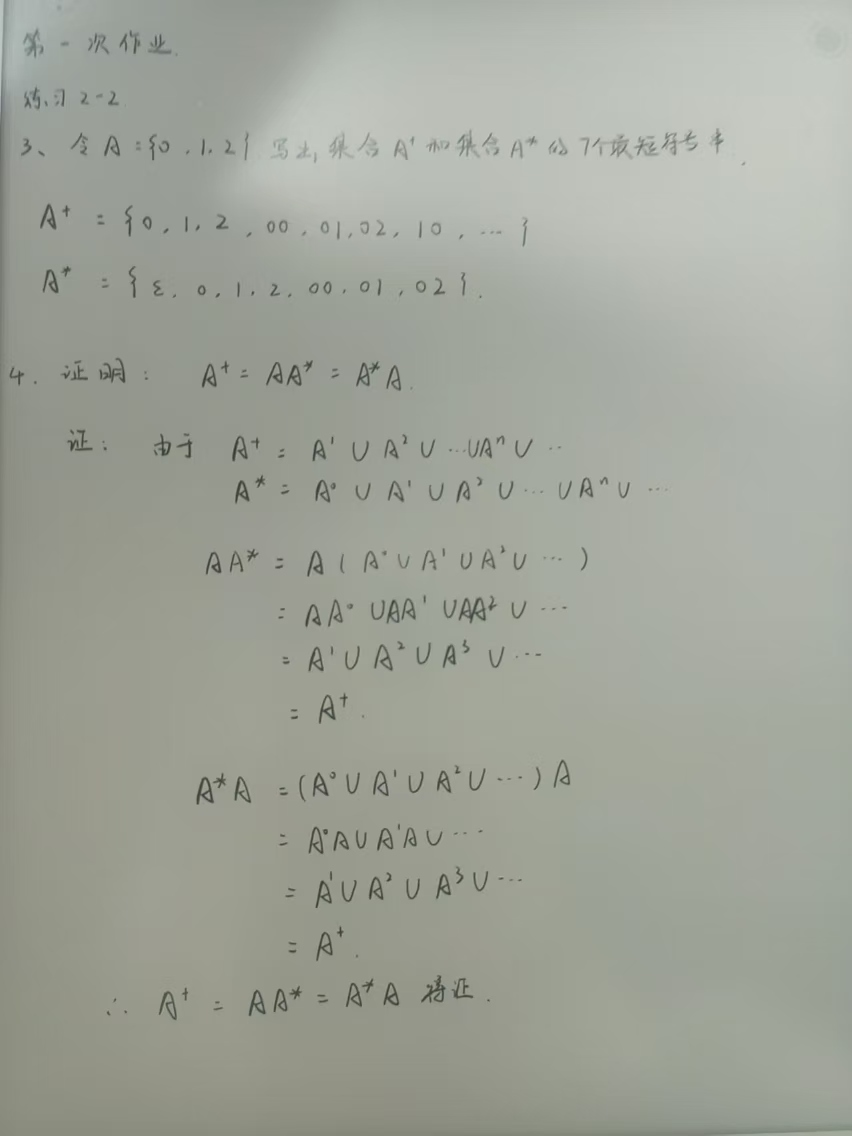 第一次作业.
练习2-2
3、令A={0,1,2} 写出集合A⁺和集合A*的7个最短符号串.
A⁺ = {0, 1, 2, 00, 01, 02, 10, … }
A* = {ε, 0, 1, 2, 00, 01, 02}.
4. 证明: A⁺ = AA* = A*A.
证: 由于 A⁺ = A¹ ∪ A² ∪ …∪Aⁿ ∪ …
A* = A⁰ ∪ A¹ ∪ A² ∪ … ∪ Aⁿ ∪ …
AA* = A ( A⁰ ∪ A¹ ∪ A² ∪ … )
= AA⁰ ∪AA¹ ∪AA² ∪ …
= A¹ ∪ A² ∪ A³ ∪ …
= A⁺.
A*A = (A⁰ ∪ A¹ ∪ A² ∪ … ) A
= A⁰A ∪ A¹A ∪ …
= A¹ ∪ A² ∪ A³ ∪ …
= A⁺.
∴ A⁺ = AA* = A*A 得证.